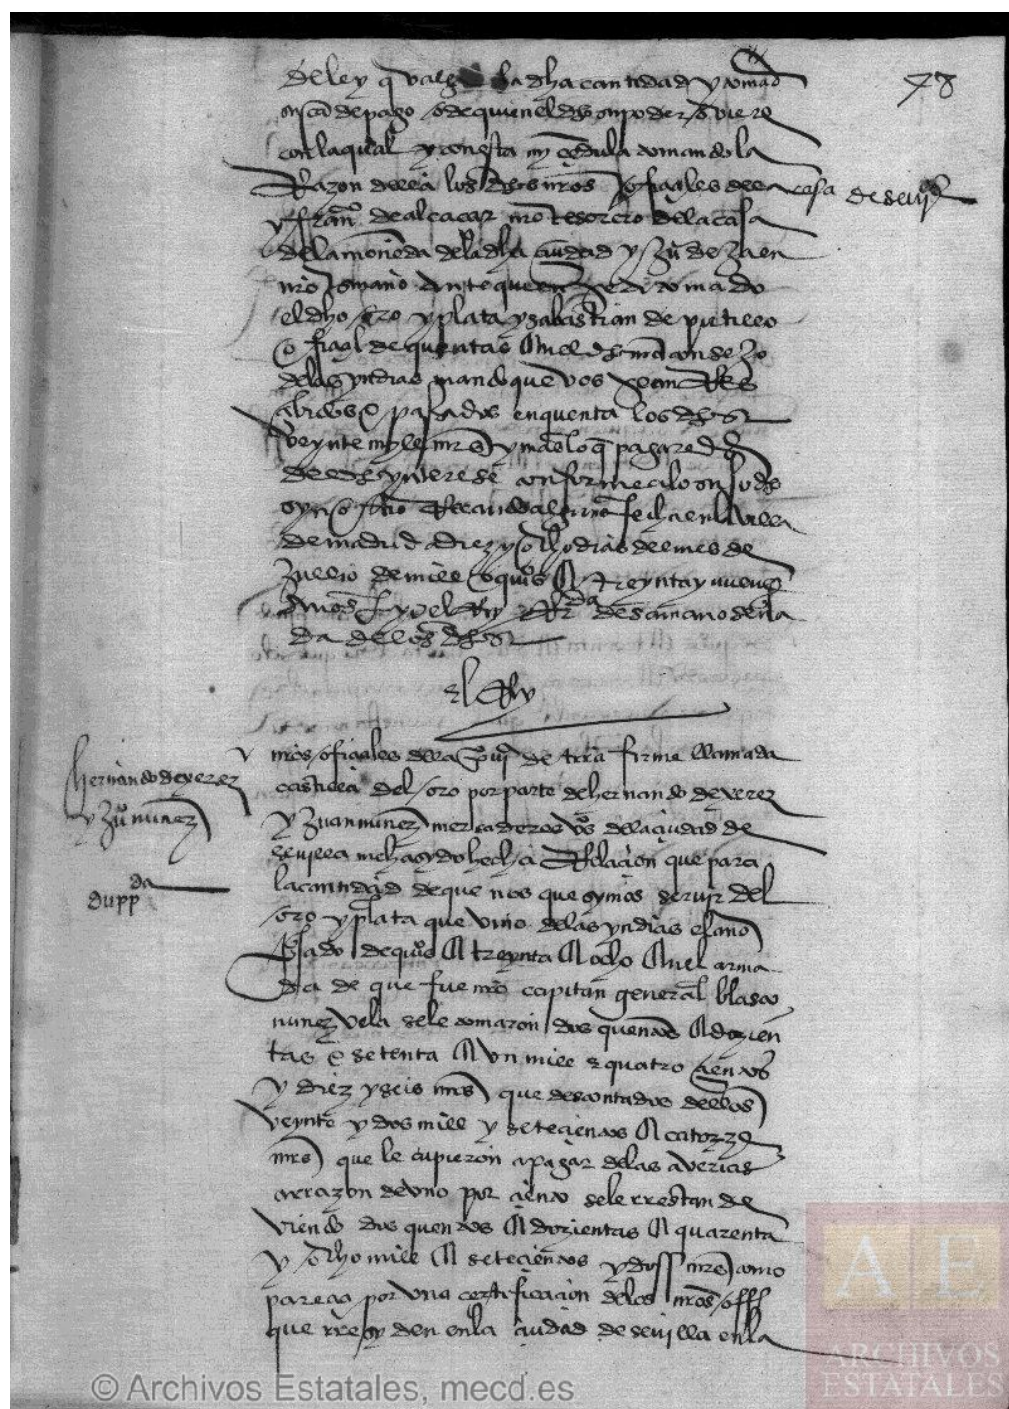 78
de ley q valga la dha cantidad y tomad
su carta de pago o de quien el dho su poder oviere
con la qual y con esta my cedula tomando la
Razon della los dhos nros oficiales de la casa de sevilla
y franco de alcaçar nro tesorero de la casa
de la moneda de la dha ciudad y Juo de Jaen
nro escrivano ante quien se a tomado
el dho oro y plata y sabastian de portillo
oficial de quentas en el dho nro consejo
de las yndias mando que vos sean Rescibidos
e pasados en quenta los dhos
veynte myle mrs y mas lo q pagaredes
de ynterese conforme a lo suso dho
syn otro Recaudo alguno fecha en la villa
de madrid a diez y ocho dias del mes de
Jullio de mill e quios e treynta y nueve
años yo el Rey Rda de samano señalada
de los dhos
el Rey
hernando de xerez
y Juo nuñez
dupp da
nros oficiales de la provi de trra firme llamada
castilla del oro por parte de hernando de xerez
y Juan nuñez mercaderes vos de la ciudad de
sevilla me ha sydo hecha Relacion que para
la cantidad de que nos quesymos servir del
oro y plata que vino de las yndias el año
pasado de quios e treynta e ocho en el arma
da de que fue nro capitan general blasco
nuñez vela se le tomaron dos quentos e dozien
tas e setenta e un mill e quatro cientos
y diez y seis mrs que descontados dellos
veynte y dos mill y setecientos e catorze
mrs que le cupieron a pagar de las averias
a rrazon de uno por ciento se le rrestan de
viendo dos quentos e dozientas e quarenta
y ocho mill e setecientos y dos mrs como
pareçia por una certificacion de los nros offs
que rresyden en la ciudad de sevilla en la
© Archivos Estatales, mecd.es
A E
ARCHIVOS
ESTATALES